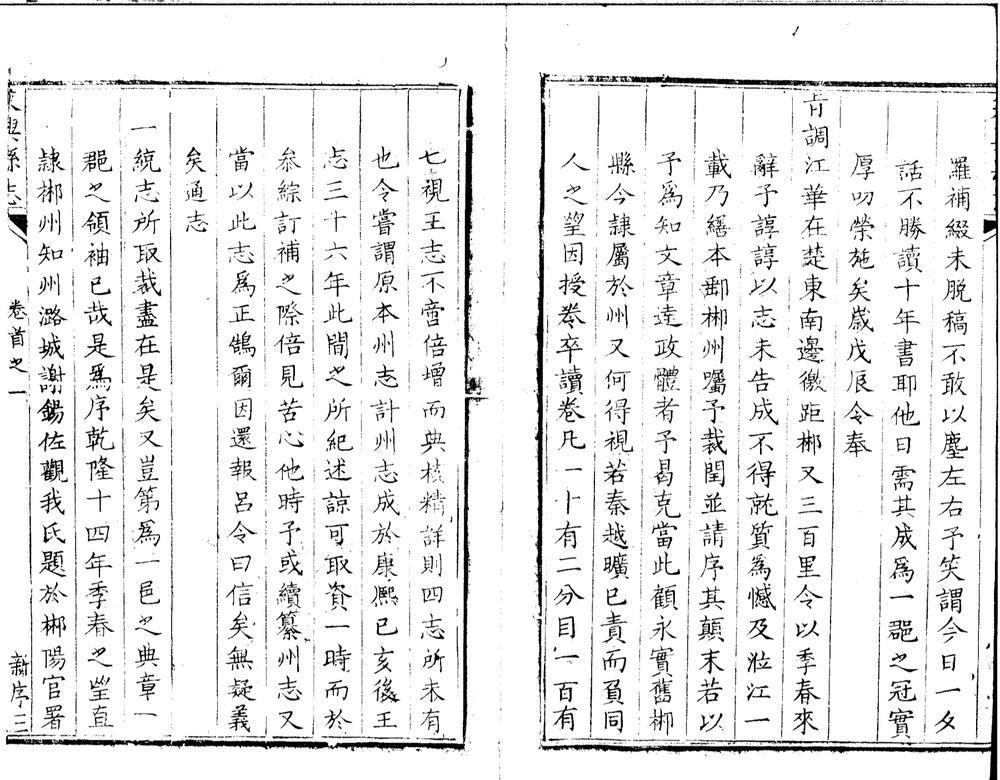 羅補綴未脫稿不敢以塵左右予笑謂今日一夕
話不勝讀十年書耶他日需其成爲一郡之冠實
厚叨榮施矣歲戊辰令奉
㫖調江華在楚東南邊徼距郴又三百里令以季春來
辭予諄諄以志未告成不得就質爲憾及涖江一
載乃繕本郵郴州囑予裁閏並請序其顛末若以
予爲知文章達政體者予曷克當此顧永實舊郴
縣今隷屬於州又何得視若秦越曠已責而負同
人之望因授卷卒讀卷凡一十有二分目一百有
七視王志不啻倍增而典核精詳則四志所未有
也令嘗謂原本州志計州志成於康熈己亥後王
志三十六年此間之所紀述諒可取資一時而於
叅綜訂補之際倍見苦心他時予或續纂州志又
當以此志爲正鵠爾因還報呂令曰信矣無疑義
矣通志
一統志所取裁盡在是矣又豈第爲一邑之典章一
郡之領袖已哉是爲序乾隆十四年季春之望直
隷郴州知州潞城謝錫佐觀我氏題於郴陽官署
興縣志
卷首之一
新序三